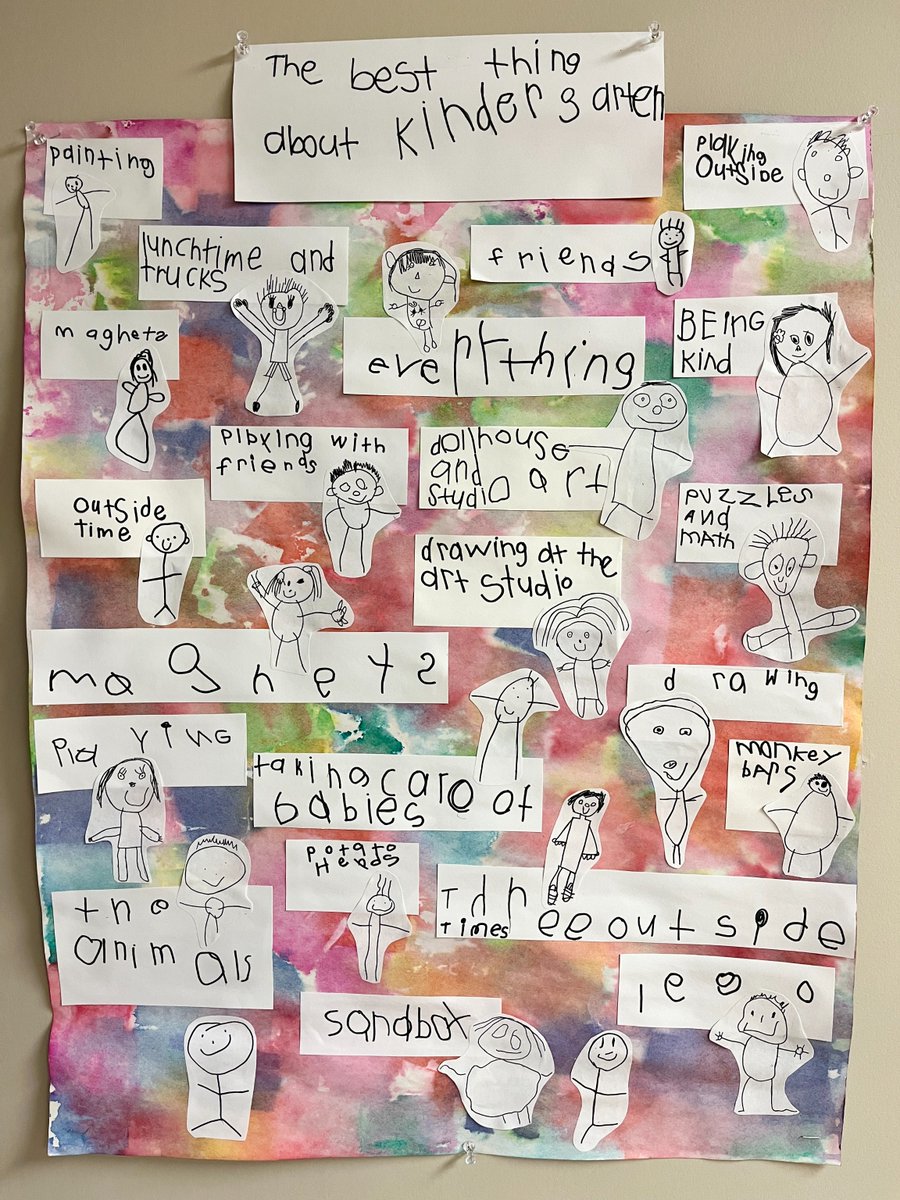 The best thing
about kindergarten
painting
playing
outside
lunchtime and
trucks
friends
magnets
everything
BEING
kind
playing with
friends
dollhouse
and
studio art
outside
time
puzzles
and
math
drawing at the
art studio
magnets
drawing
playing
taking care of
babies
monkey
bars
potato
Heads
the
animals
Three outside
times
lego
sandbox